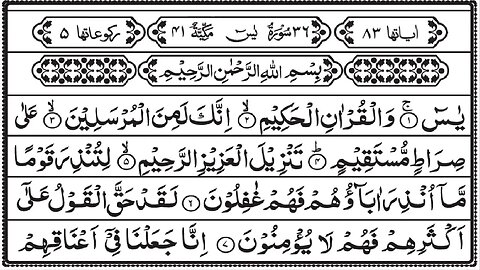 اٰیاتها ٨٣ ٣٦ سُوْرَةُ یٰسٓ مَكِّیَّةٌ ٤١ رکوعاتها ٥
بِسْمِ اللّٰهِ الرَّحْمٰنِ الرَّحِیْمِ
یٰسٓ ۚ﴿١﴾ وَالْقُرْاٰنِ الْحَكِیْمِ ۙ﴿٢﴾ اِنَّكَ لَمِنَ الْمُرْسَلِیْنَ ۙ﴿٣﴾ عَلٰی
صِرَاطٍ مُّسْتَقِیْمٍ ؕ﴿٤﴾ تَنْزِیْلَ الْعَزِیْزِ الرَّحِیْمِ ۙ﴿٥﴾ لِتُنْذِرَ قَوْمًا
مَّاۤ اُنْذِرَ اٰبَآؤُهُمْ فَهُمْ غٰفِلُوْنَ ﴿٦﴾ لَقَدْ حَقَّ الْقَوْلُ عَلٰۤی
اَكْثَرِهِمْ فَهُمْ لَا یُؤْمِنُوْنَ ﴿٧﴾ اِنَّا جَعَلْنَا فِیْۤ اَعْنَاقِهِمْ